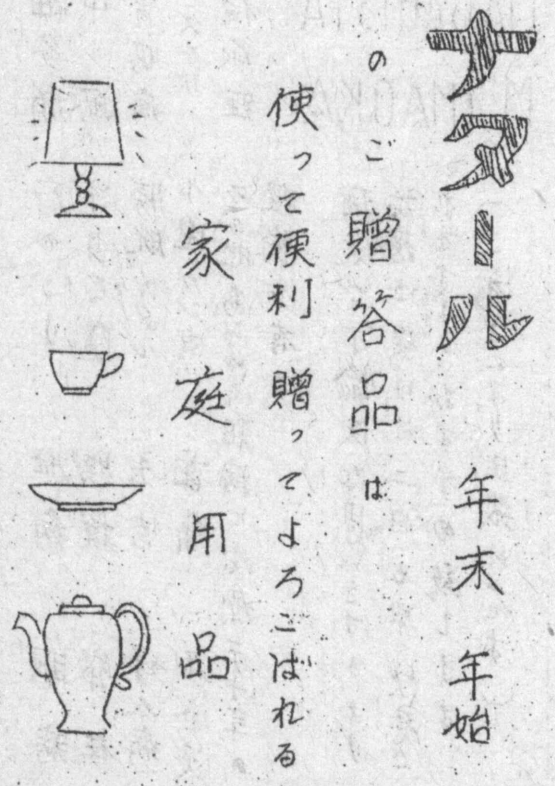 ナタール 年末 年始
のご贈答品は
使って便利 贈ってよろこばれる
家庭用品